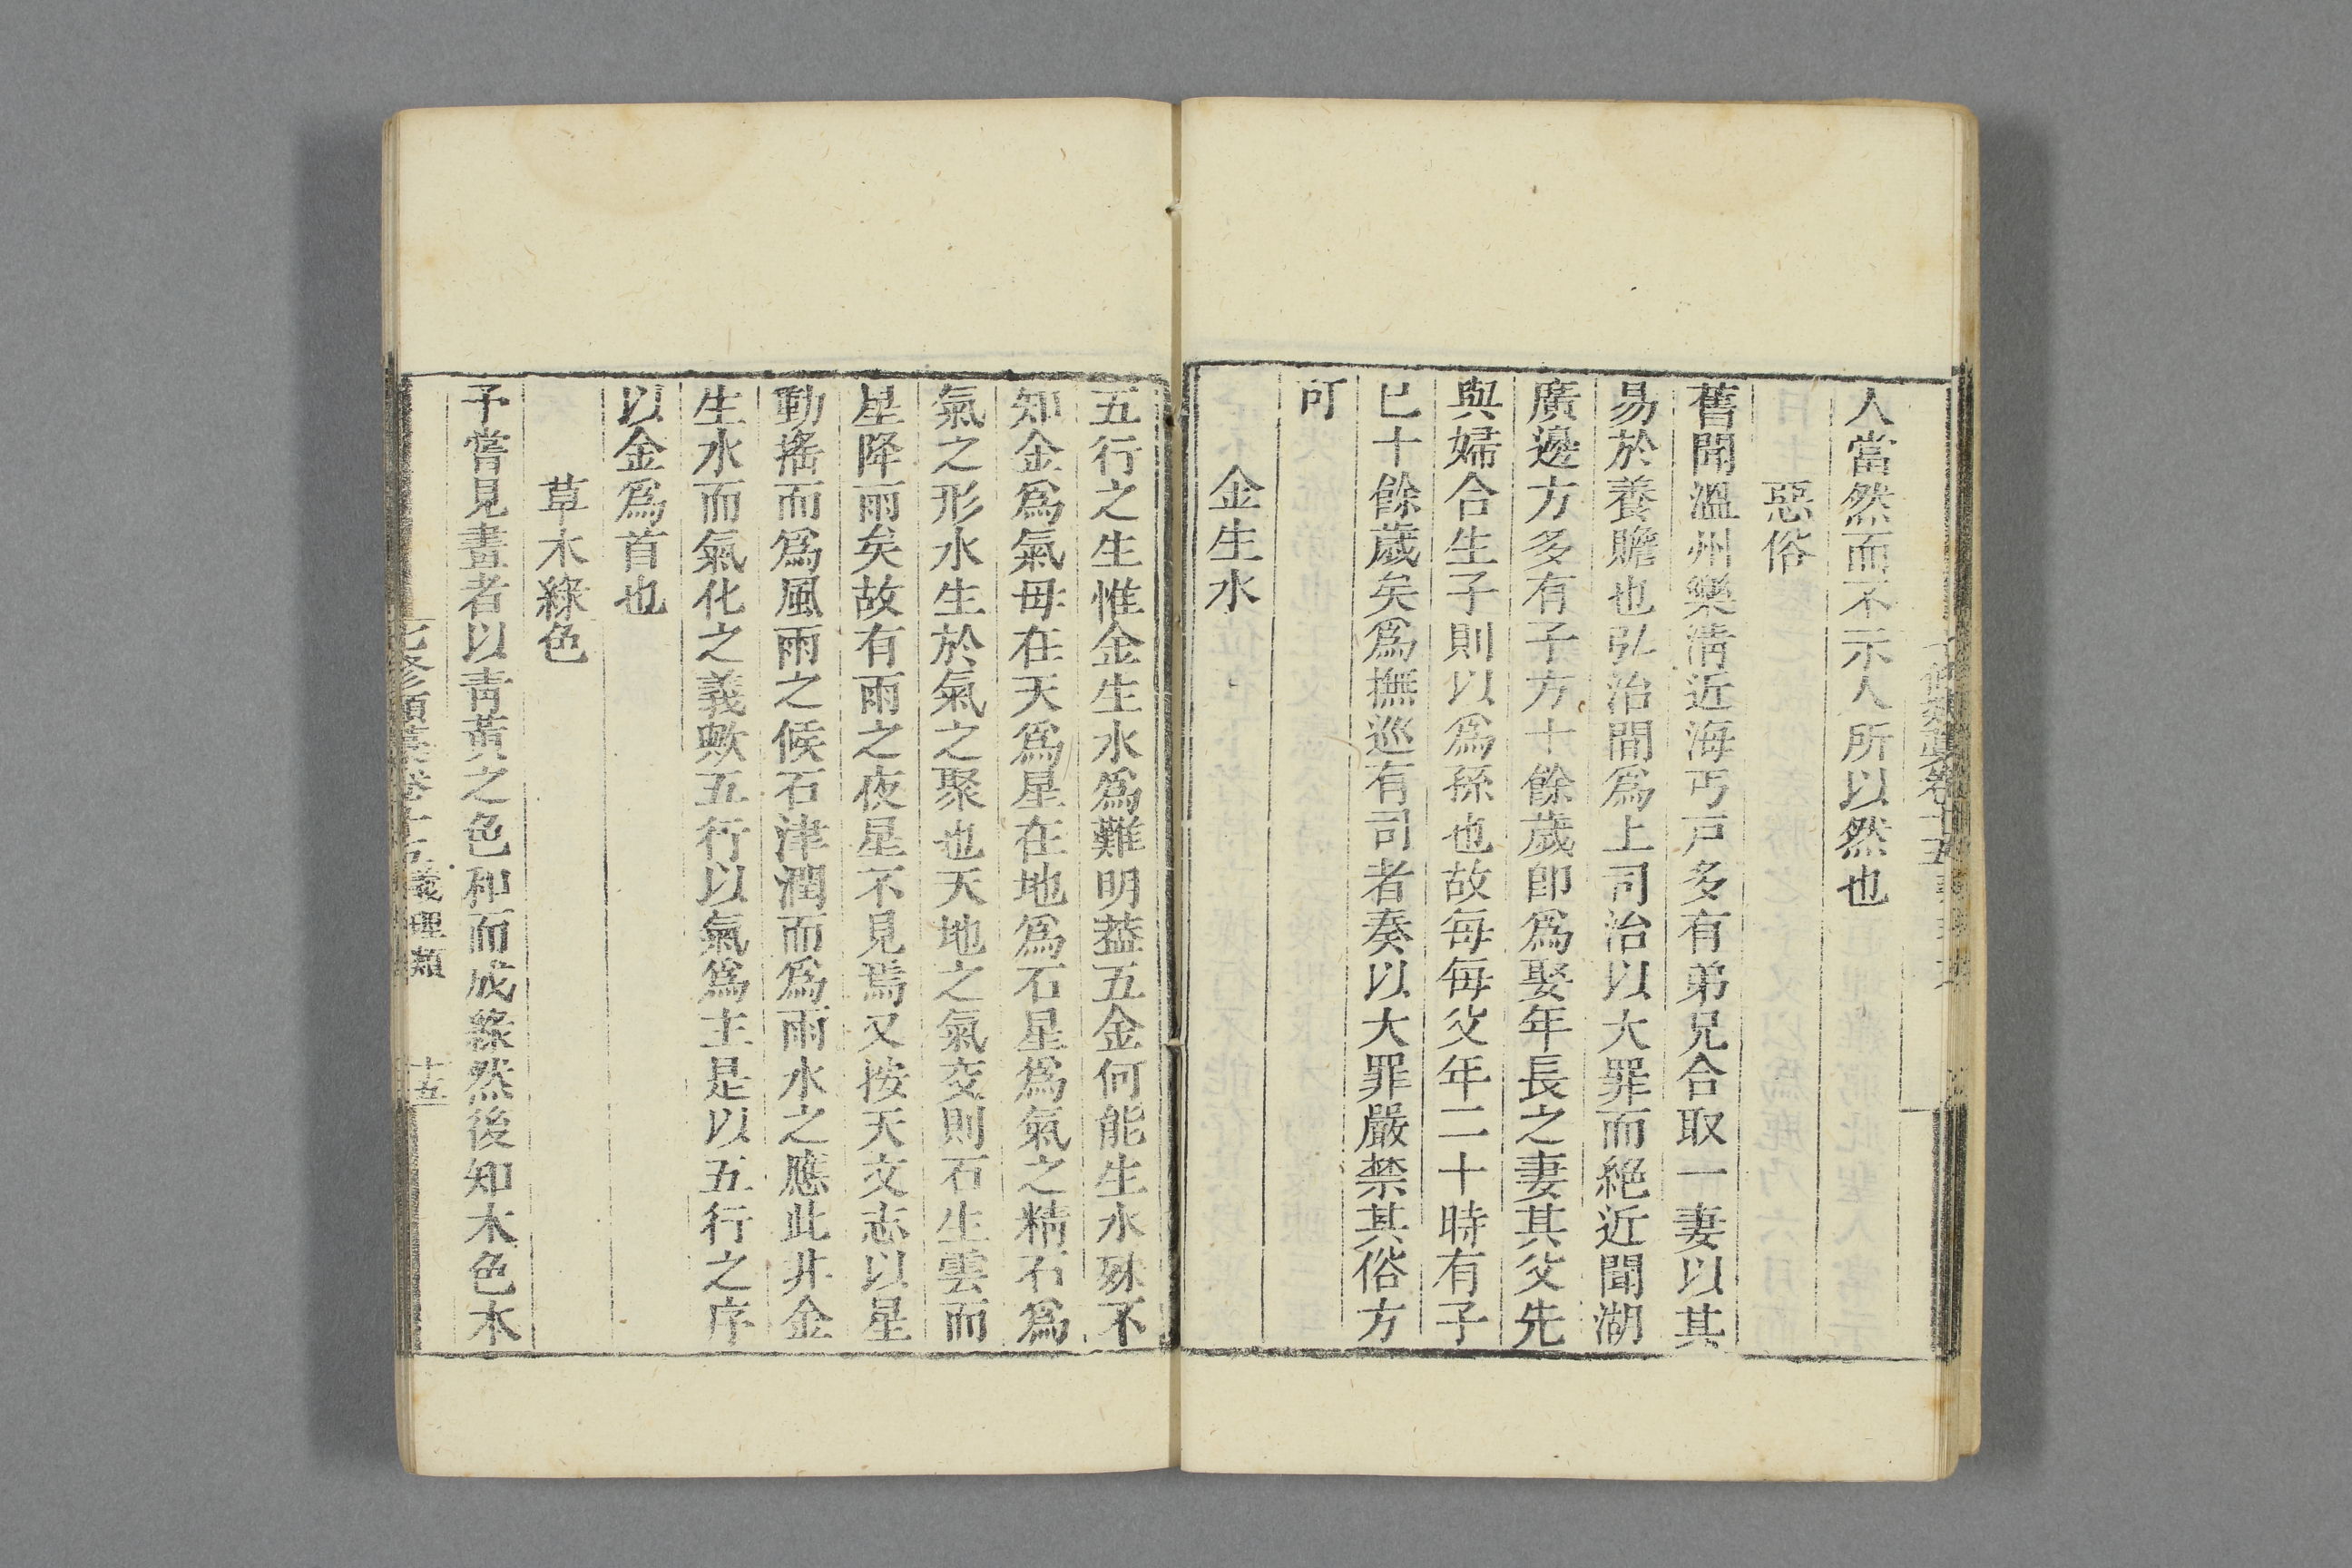 人當然而不示人所以然也
惡俗
舊聞溫州樂淸近海丐戸多有弟兄合取一妻以其
易於養贍也弘治間爲上司治以大罪而絕近聞湖
廣邊方多有子方十餘歲卽爲娶年長之妻其父先
與婦合生子則以爲孫也故每每父年二十時有子
巳十餘歲矣爲撫巡有司者奏以大罪嚴禁其俗方
可
金生水
五行之生惟金生水爲難明葢五金何能生水殊不
知金爲氣母在天爲星在地爲石星爲氣之精石爲
氣之形水生於氣之聚也天地之氣交則石生雲而
星降雨矣故有雨之夜星不見焉又按天文志以星
動搖而爲風雨之候石津潤而爲雨水之應此非金
生水而氣化之義歟五行以氣爲主是以五行之序
以金爲首也
草木綠色
予嘗見畫者以靑黃之色和而成綠然後知木色本
七修類藁卷十五義理類 十五